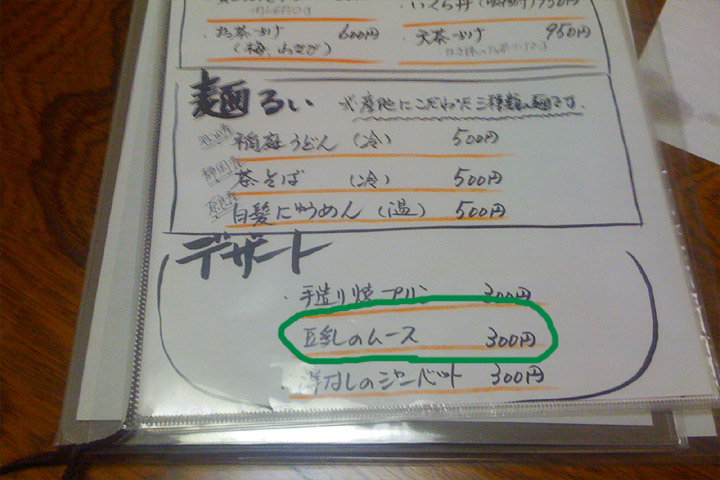 いくら丼 750円
・お茶づけ 600円
(梅、わさび)
・天茶づけ 950円
麺るい ※産地にこだわった三種類の麺です。
稲庭うどん (冷) 500円
茶そば (冷) 500円
奈良産
白髪にゅうめん (温) 500円
デザート
・手造り焼プリン 300円
豆乳のムース 300円
・洋なしのシャーベット 300円